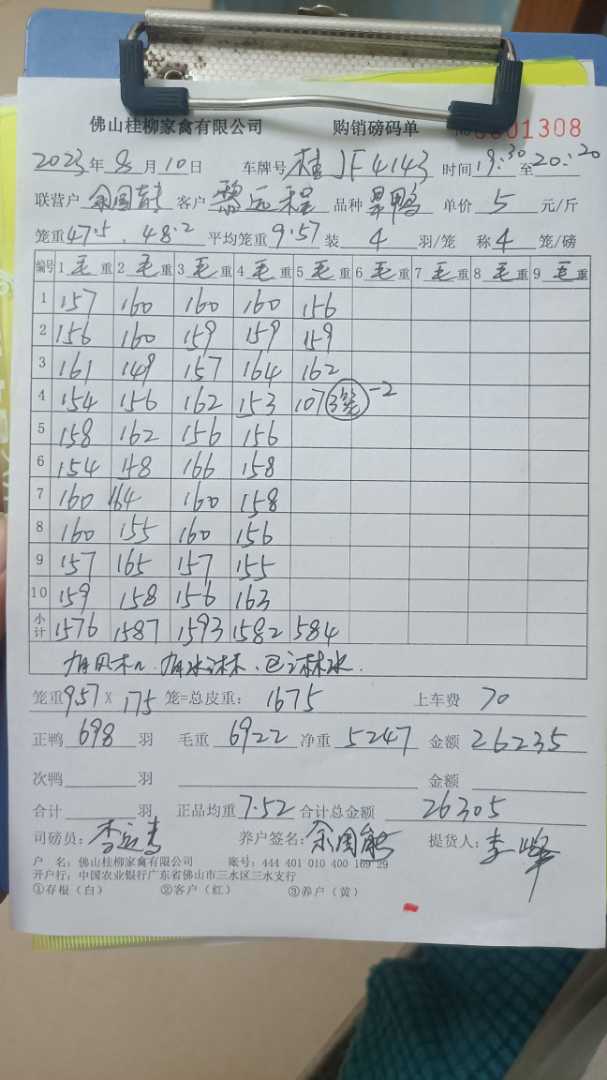 佛山桂柳家禽有限公司 购销磅码单 0001308
2023年8月10日 车牌号 桂JF4143 时间19:30至20:20
联营户 余国能 客户 黎远程 品种 旱鸭 单价 5 元/斤
笼重47.5、48.2 平均笼重9.57 装 4 羽/笼 称4 笼/磅
编号 1毛重 2毛重 3毛重 4毛重 5毛重 6毛重 7毛重 8毛重 9毛重
1 157 160 160 160 156
2 156 160 159 159 159
3 161 149 157 164 162
4 154 156 162 153 107 3笼 -2
5 158 162 156 156
6 154 148 166 158
7 160 164 160 158
8 160 155 160 156
9 157 165 157 155
10 159 158 156 163
小计 1576 1587 1593 1582 584
笼重9.57 X 175 笼=总皮重: 1675 上车费 70
正鸭 698 羽 毛重 6922 净重 5247 金额 26235
次鸭 羽 金额
合计 羽 正品均重 7.52 合计总金额 26305
司磅员: 养户签名: 余国能 提货人: 李峰
户 名: 佛山桂柳家禽有限公司 账号: 444 401 010 400 169 29
开户行: 中国农业银行广东省佛山市三水区三水支行
①存根(白) ②客户(红) ③养户(黄)